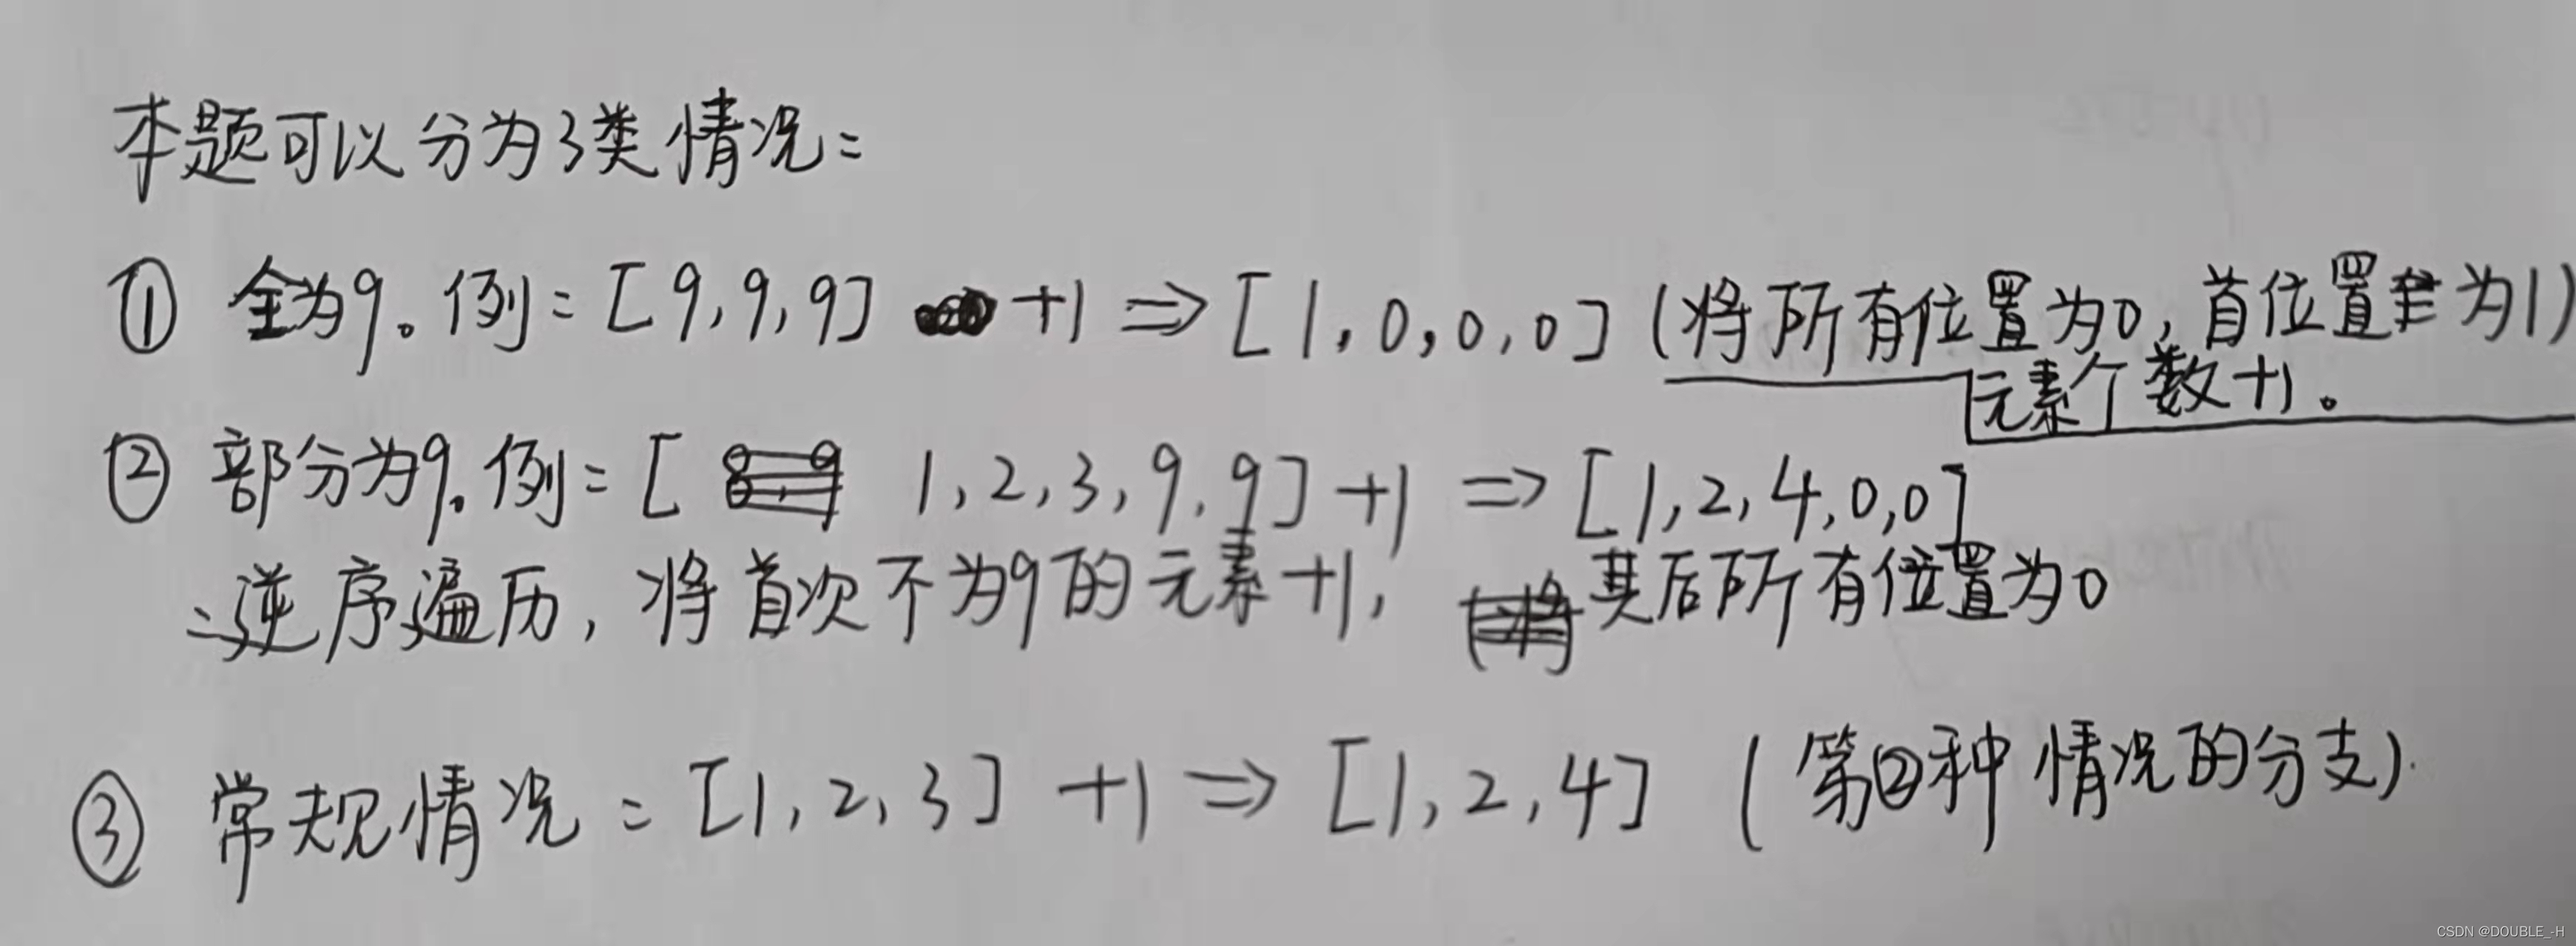 本题可以分为3类情况:
① 全为9。例:[9,9,9] +1 ⇒ [1,0,0,0] (将所有位置为0,首位置为1)
元素个数+1。
② 部分为9。例:[ 1,2,3,9,9]+1 ⇒ [1,2,4,0,0]
:逆序遍历,将首次不为9的元素+1, 其后所有位置为0
③ 常规情况:[1,2,3] +1 ⇒ [1,2,4] (第②种情况的分支).
CSDN @DOUBLE_-H